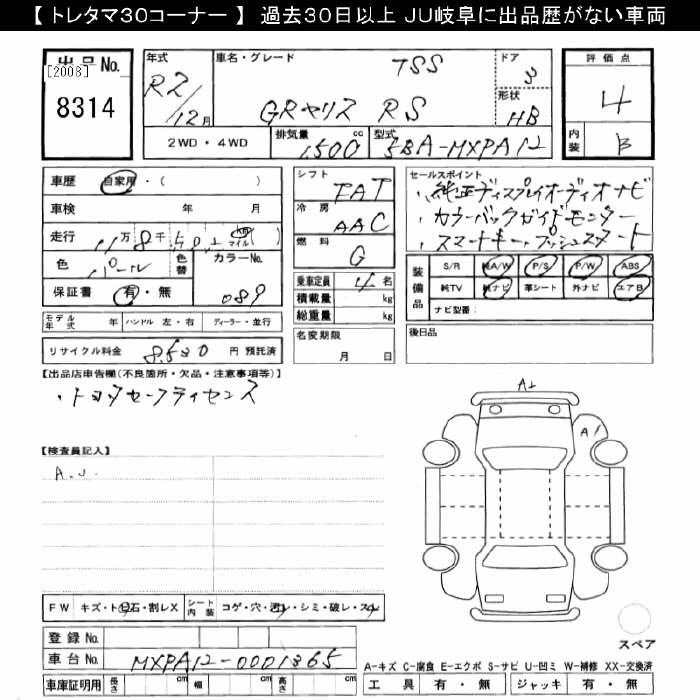 【 トレタマ30コーナー 】 過去30日以上 JU岐阜に出品歴がない車両
出品No.
[2008]
8314
年式
R2/12月
車名・グレード
TSS
GRヤリス RS
ドア
3
形状
HB
評価点
4
内装
B
2WD・4WD
排気量
1,500cc
型式
5BA-MXPA12
車歴 自家用・( )
車検 年 月
走行 万 8千 km マイル ( )
色 パール 色替 カラーNo. 089
保証書 有・無
シフト FAT
冷房 AAC
燃料 G
乗車定員 4名
積載量 kg
総重量 kg
セールスポイント
・純正ディスプレイオーディオナビ
・カラーバックガイドモニター
・スマートキー、プッシュスタート
装備品
S/R 純A/W P/S P/W ABS
純TV 純ナビ 革シート 外ナビ エアB
ナビ型番:
モデル年式 年 ハンドル 左・右 ディーラー・並行
名変期限 月 日
後日品
リサイクル料金 8,530円 預託済
【出品店申告欄(不良箇所・欠品・注意事項等)】
・トヨタセーフティセンス
A1
A1
【検査員記入】
A.U
FW キズ・ト石・割レX シート内装 コゲ・穴・汚レ・シミ・破レ・スレ
登録 No.
車台 No. MXPA12-0001365
車庫証明用 長さ cm 幅 cm 高さ cm
スペア
A-キズ C-腐食 E-エクボ S-サビ U-凹ミ W-補修 XX-交換済
工具 有・無 ジャッキ 有・無